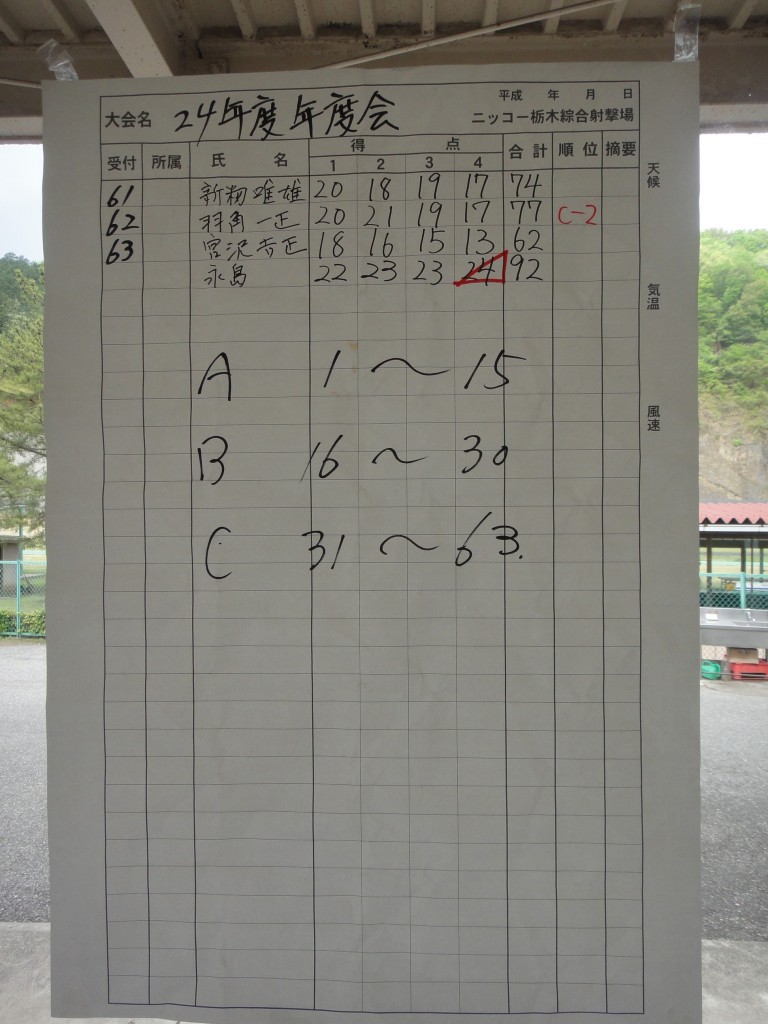 平成 年 月 日
大会名 24年度年度会 ニッコー栃木綜合射撃場
受付 所属 氏 名 得 点 合計 順位 摘要
1 2 3 4
61 新籾 雄 20 18 19 17 74
62 羽角一正 20 21 19 17 77 C-2
63 宮沢吉正 18 16 15 13 62
永島 22 23 23 24 92
A 1 〜 15
B 16 〜 30
C 31 〜 63.
天候
気温
風速